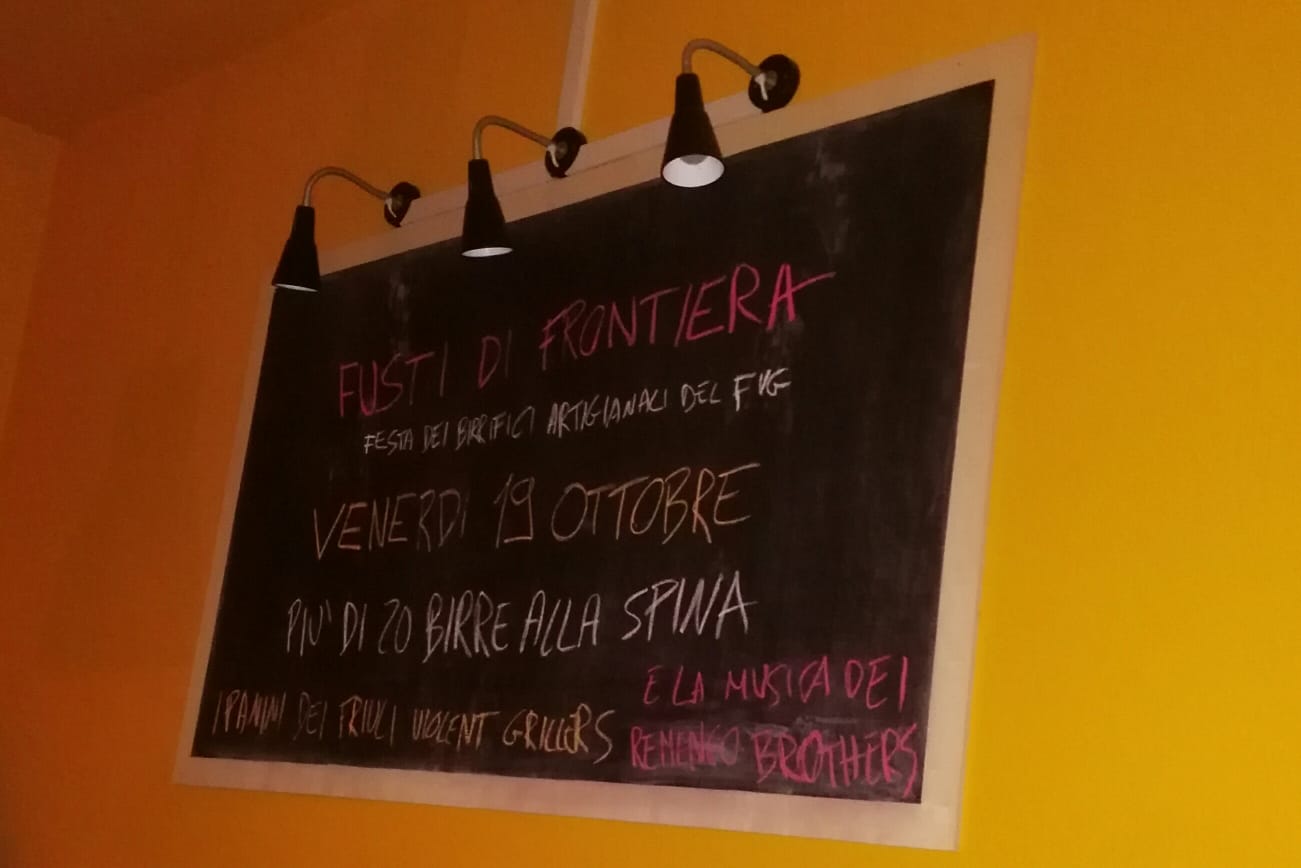 FUSTI DI FRONTIERA
FESTA DEI BIRRIFICI ARTIGIANALI DEL FVG
VENERDI 19 OTTOBRE
PIU' DI 20 BIRRE ALLA SPINA
I PANINI DEI FRIULI VIOLENT GRILLERS
E LA MUSICA DEI
REMENGO BROTHERS